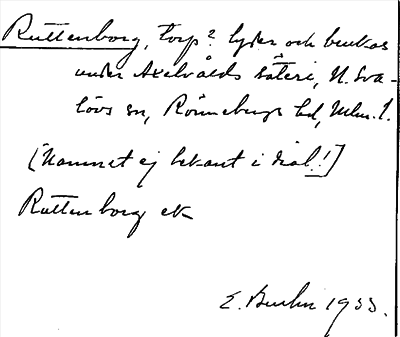 Ruttenborg, torp? lyder och brukas
under Axelvolds säteri, N. Sva-
lövs sn, Rönnebergs hd, Mlm. l.
[Namnet ej bekant i dial.!]
Ruttenborg ek
E. 1933.